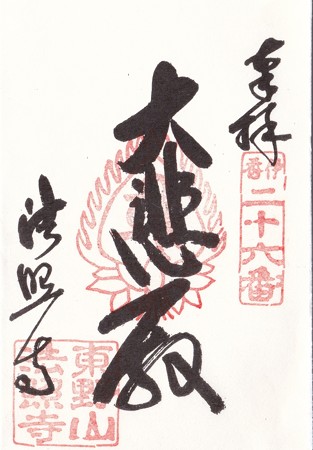 奉拝
伊呂
二十六番
大悲殿
法照寺
東野山
法照寺